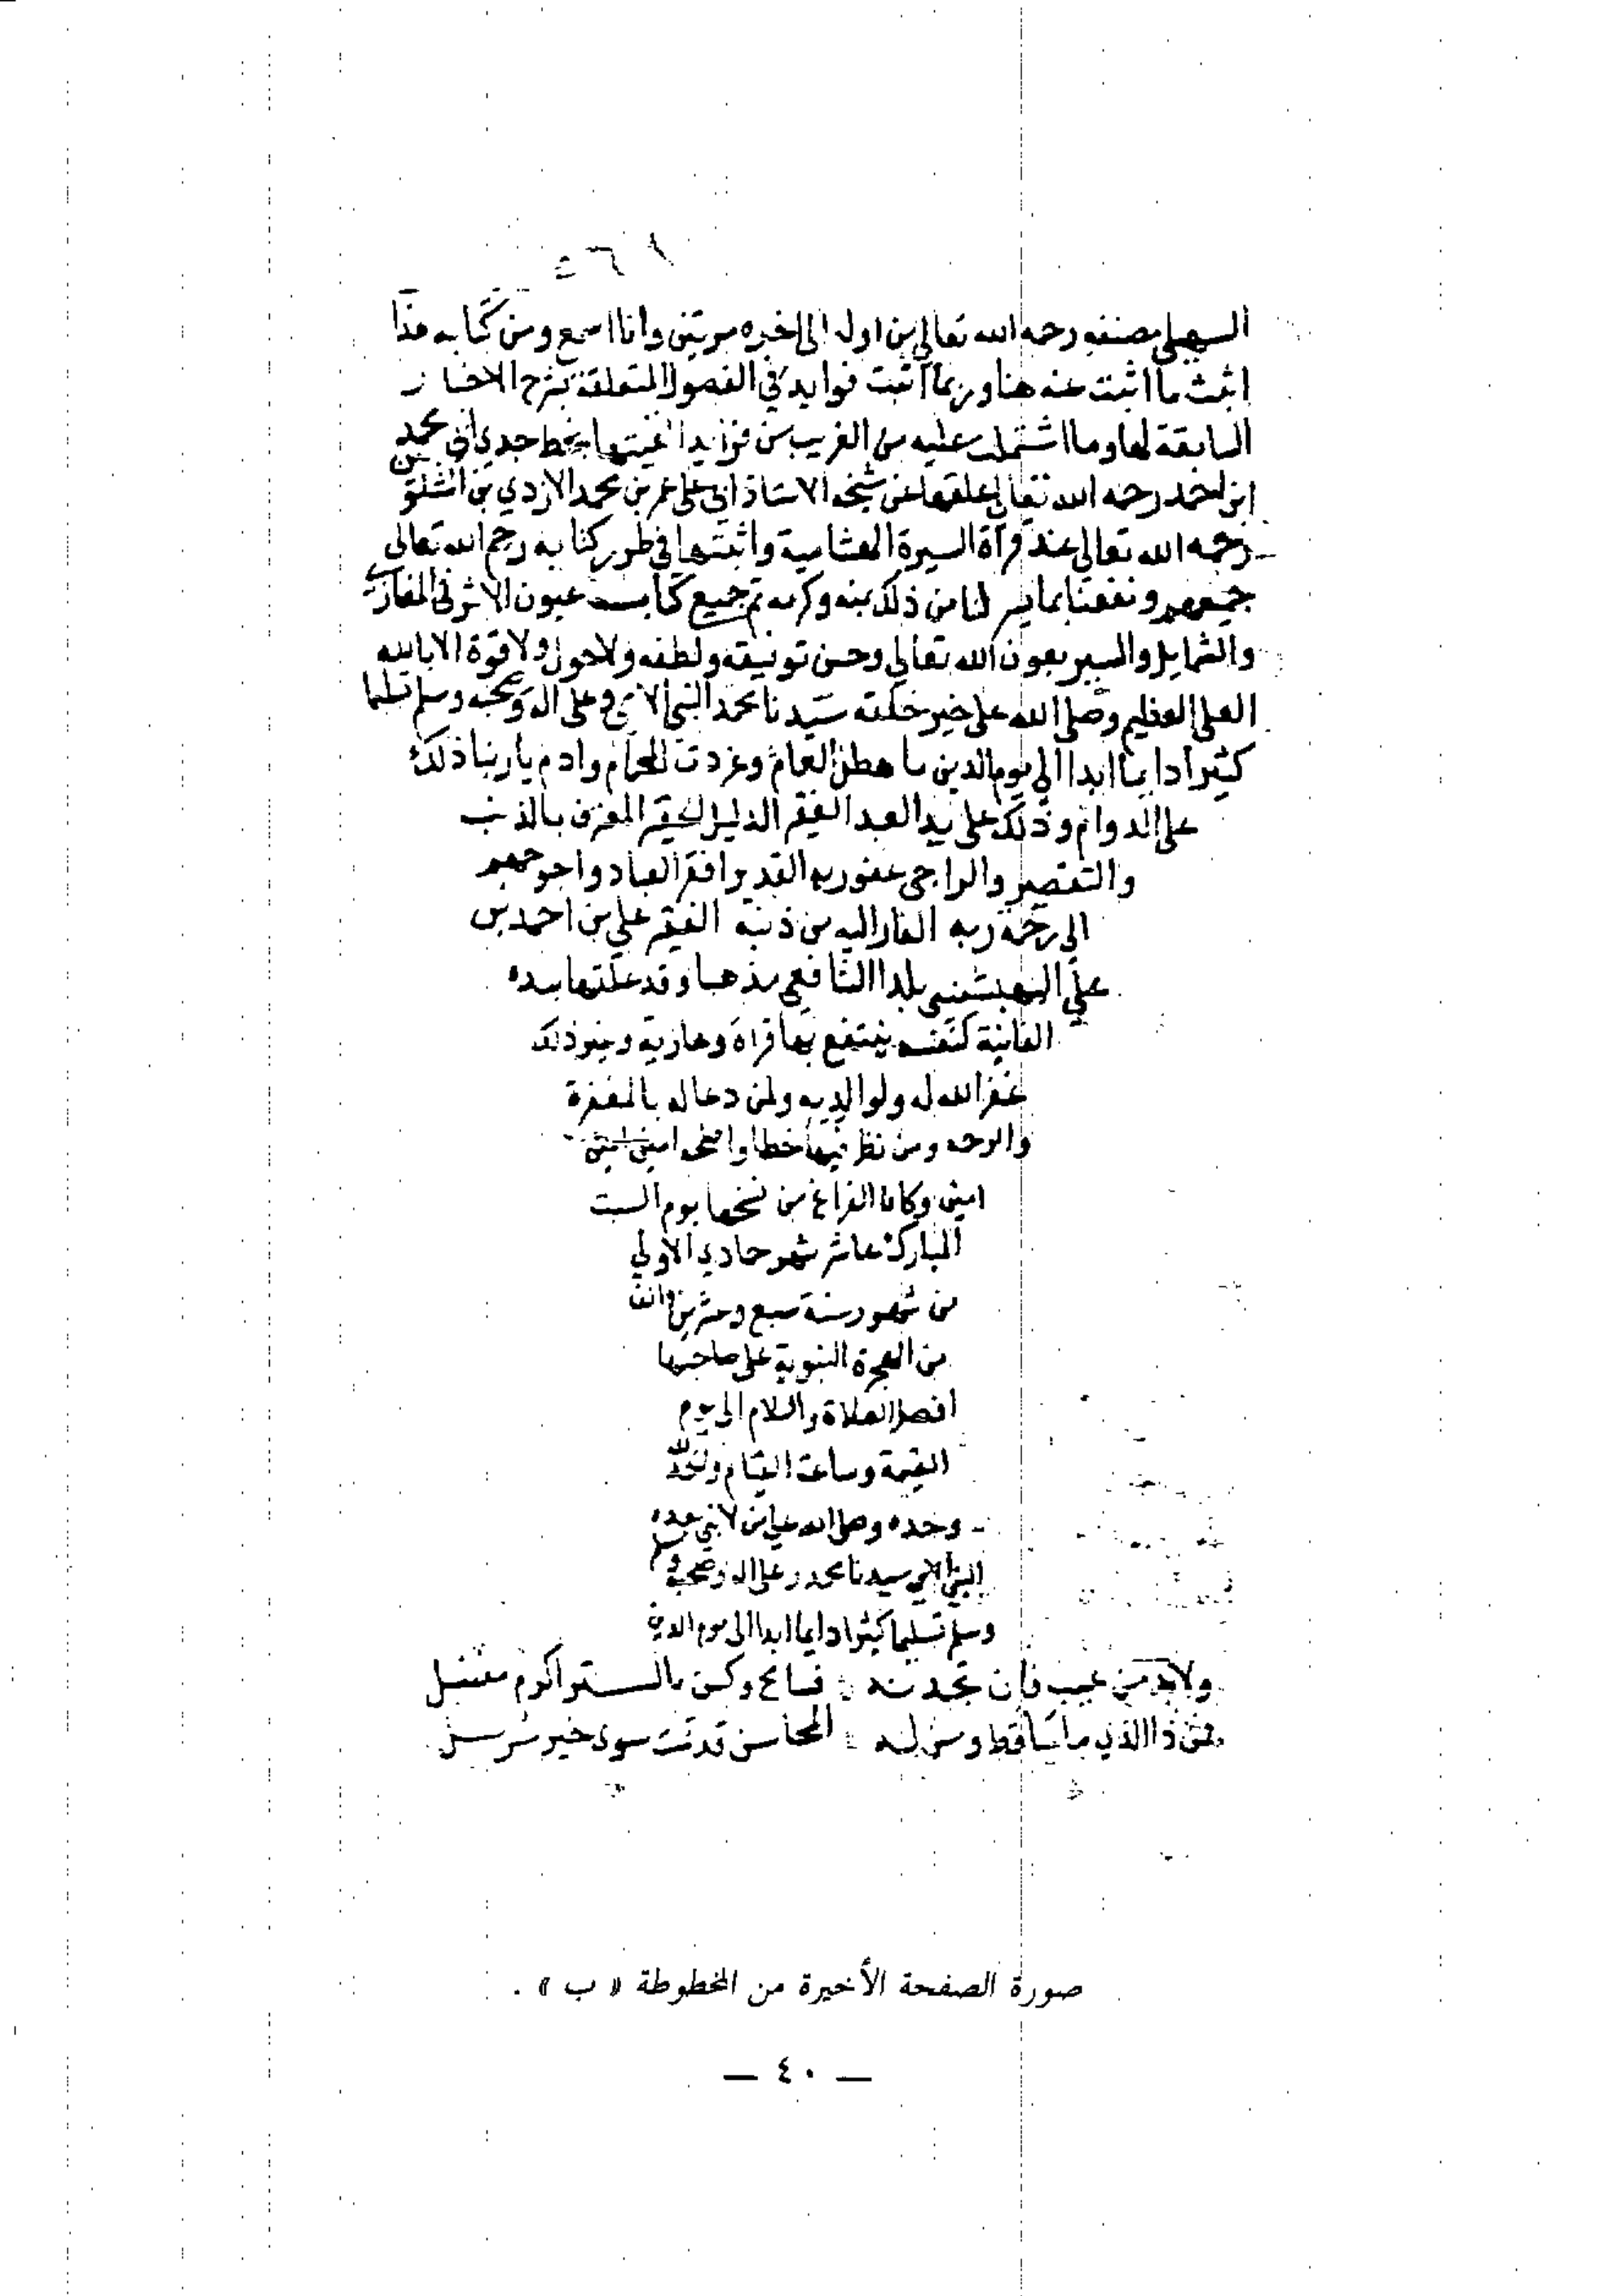 السهيلي مصنفه رحمه الله تعالى من اوله الى اخره مرتين وانا اسمع ومن كتابه هذا
اثبت ما اثبت عنه هنا وربما اثبت فوايد في الفصول المتعلقة بشرح الاخبار
السابقة لها وما اشتملت عليه من الغريب من فوايد الفيتها بخط جدي ابي بكر محمد
ابن احمد رحمه الله تعالى علقها عن شيخه الاستاذ ابي علي عمر بن محمد الازدي بن الشلوبين
رحمه الله تعالى عند قراة السيرة الهشامية واثبتها في طرر كتابه رحم الله تعالى
جميعهم ونفعنا بما يسر لنا من ذلك بمنه وكرمه تم جميع كتاب عيون الاثر في المغازي
والشمايل والسير بعون الله تعالى وحسن توفيقه ولطفه ولا حول ولا قوة الا بالله
العلي العظيم وصلى الله على خير خلقه سيدنا محمد النبي الامي وعلى اله وصحبه وسلم تسليما
كثيرا دايما ابدا الى يوم الدين ما هطل الغمام وغردت الحمام وادم يا ربنا ذلك
على الدوام وذلك على يد العبد الفقير الذليل الحقير المعترف بالذنب
والتقصير والراجي عفو ربه القدير افقر العباد واحوجهم
الى رحمة ربه الفار اليه من ذنبه الفقير علي بن احمد بن
علي بلدا الشافعي مذهبا وقد علقتها بيده
الفانية لنفسه ينتفع بها قراة وعارية وغير ذلك
غفر الله له ولوالديه ولمن دعا له بالمغفرة
والرحمه ومن نظر فيها خطا واصلحه امين امين
امين وكان الفراغ من نسخها يوم السبت
المبارك عاشر شهر جمادي الاولى
من شهور سنة سبع وعشرين والف
من الهجرة النبوية على صاحبها
افضل الصلاة والسلام الى يوم
القيمة وساعة القيام والحمد لله
وحده وصلى الله على من لا نبي بعده
النبي الامي سيدنا محمد وعلى اله وصحبه وسلم
وسلم تسليما كثيرا دايما ابدا الى يوم الدين
ولابد من عيب فان تجدنه فسامح وكن بالستر اكرم مفضل
فمن ذا الذي ما ساء قط ومن له المحاسن قد تمت سوى خير مرسل
صورة الصفحة الأخيرة من المخطوطة « ب » .
— ٤٠ —